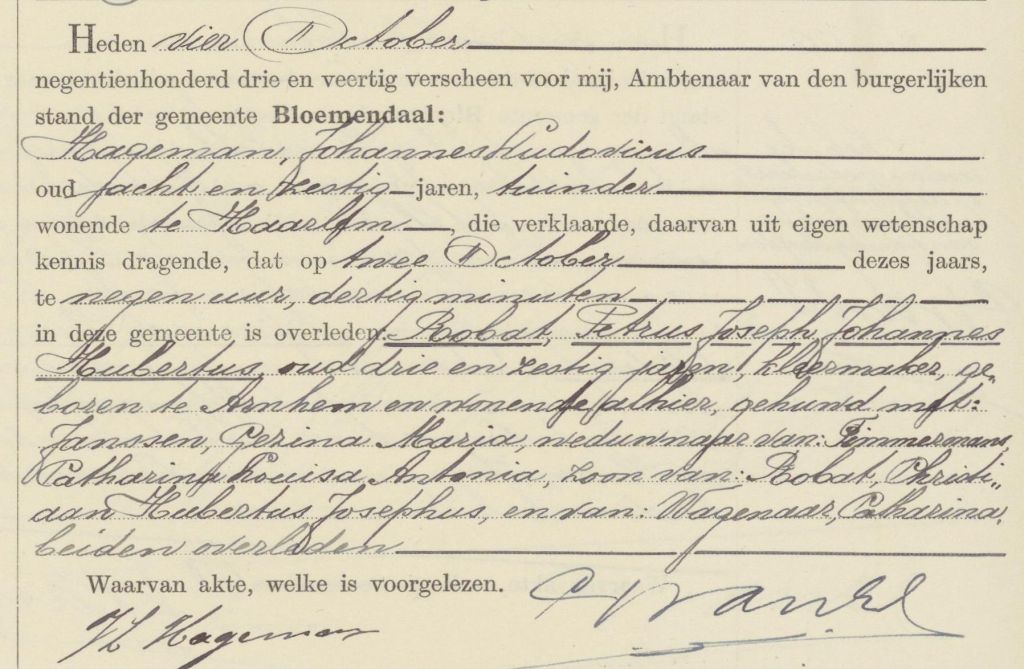 Heden vier October
negentienhonderd drie en veertig verscheen voor mij, Ambtenaar van den burgerlijken
stand der gemeente Bloemendaal:
Hageman, Johannes Ludovicus
oud acht en zestig jaren, tuinder
wonende te Haarlem, die verklaarde, daarvan uit eigen wetenschap
kennis dragende, dat op twee October dezes jaars,
te negen uur, dertig minuten
in deze gemeente is overleden: Robat, Petrus Joseph Johannes
Hubertus, oud drie en zestig jaren, kleermaker, ge„
boren te Arnhem en wonende alhier, gehuwd met:
Janssen, Gezina Maria, weduwnaar van: Timmermans,
Catharina Louisa Antonia, zoon van: Robat, Christi„
aan Hubertus Josephus, en van: Wagenaar, Catharina,
beiden overleden
Waarvan akte, welke is voorgelezen.
JL Hageman